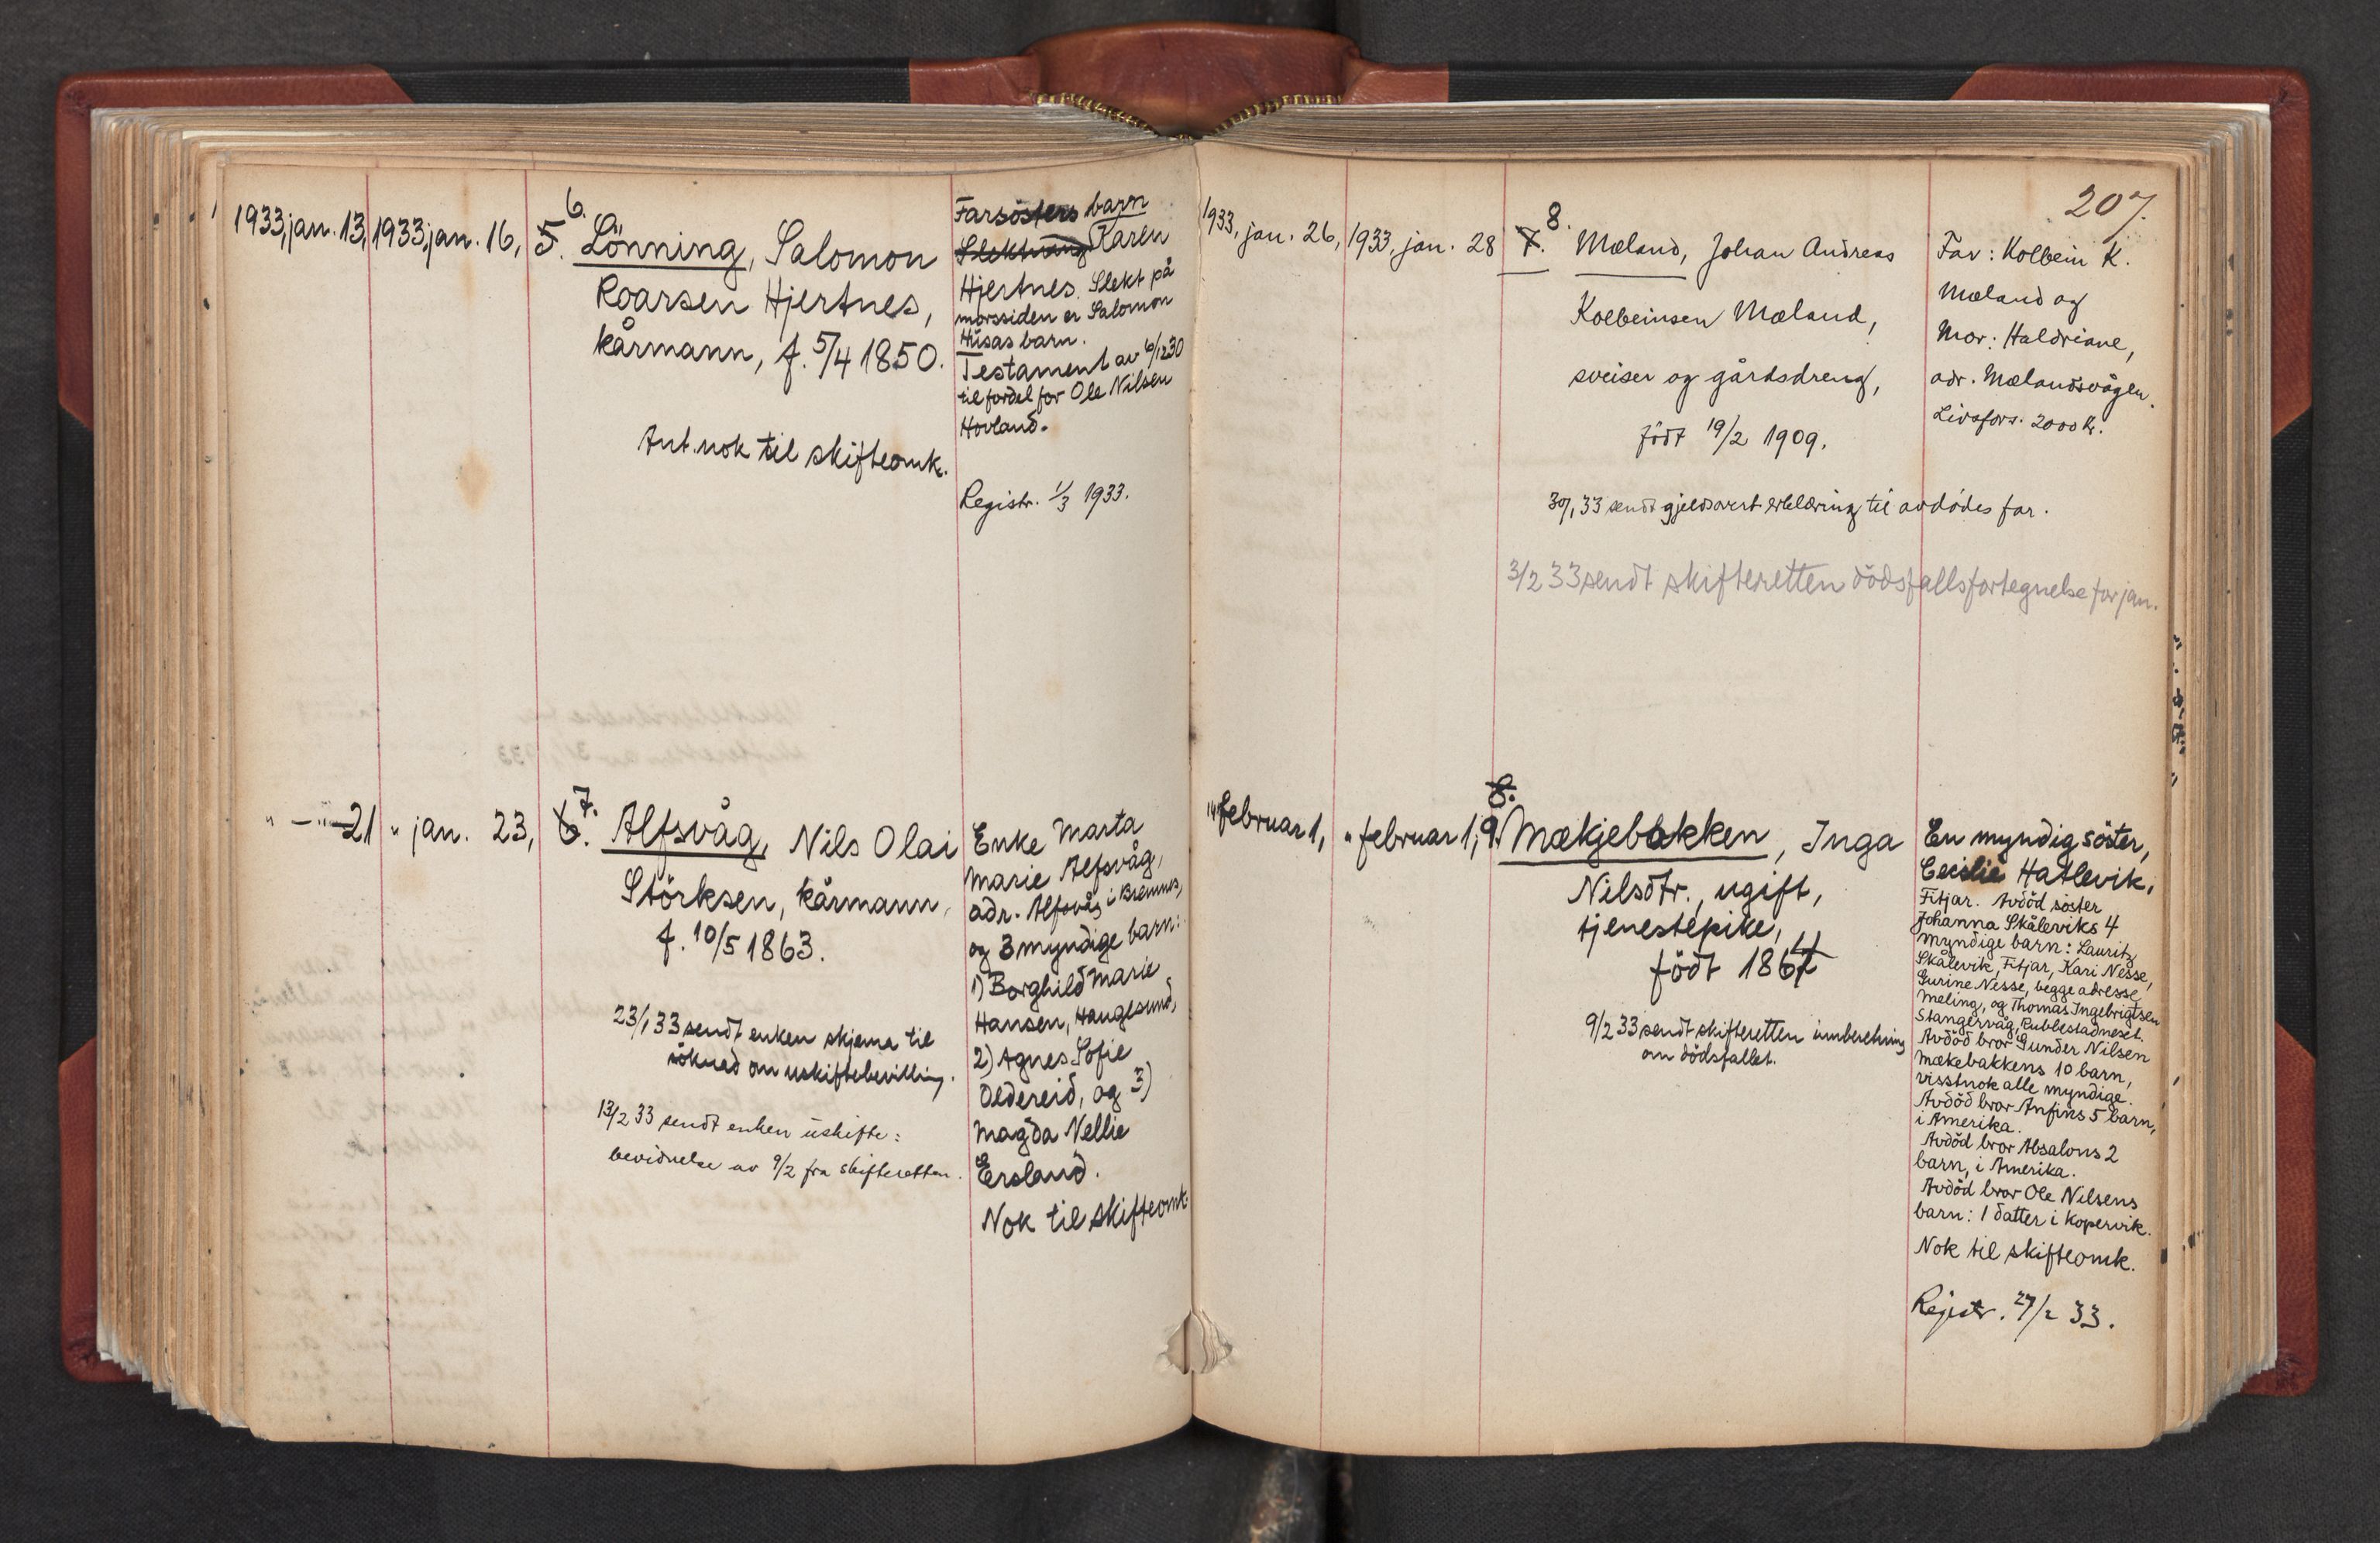 1933, jan. 13, 1933, jan. 16, 5. 6. Lönning, Salomon
Roarsen Hjertnes,
kårmann, f. 5/4 1850.
Ant. nok til skifteomk.
Farsösters barn
Karen
Hjertnes. Slekt på
morssiden er Salomon
Husas barn.
Testament av 6/12 30
til fordel for Ole Nilsen
Hovland.
Registr. 1/3 1933.
" — " — 21 " jan. 23, 6. 7. Alfsvåg, Nils Olai
Störksen, kårmann,
f. 10/5 1863.
23/1 33 sendt enken skjema til
söknad om uskiftebevilling.
13/2 33 sendt enken uskifte:
bevidnelse av 9/2 fra skifteretten.
Enke Marta
Marie Alfsvåg,
adr. Alfsvåg i Bremnes,
og 3 myndige barn:
1) Borghild Marie
Hansen, Haugesund,
2) Agnes Sofie
Oldereid, og 3)
Magda Nellie
Ersland.
Nok til skifteomk.
207.
1933, jan. 26, 1933, jan. 28 7. 8. Mæland, Johan Andreas
Kolbeinsen Mæland,
sveiser og gårdsdreng,
födt 19/2 1909.
Far: Kolbein K.
Mæland og
Mor: Haldriane,
adr. Mælandsvågen.
Livsfors. 2000 kr.
30/1 33 sendt gjeldsovert. erklæring til avdödes far.
3/2 33 sendt skifteretten dödsfallsfortegnelse for jan.
"" februar 1, " februar 1, 8. 9. Mækjebakken, Inga
Nilsdtr., ugift,
tjenestepike,
födt 1864
9/2 33 sendt skifteretten innberetning
om dödsfallet.
En myndig söster,
Hatlevik,
Fitjar. Avdöd söster
Johanna Skåleviks 4
myndige barn: Lauritz
Skålevik, Fitjar, Kari Nesse,
Gurine Nesse, begge adresse
Meling, og Thomas Ingebrigtsen
Stangervåg, Rubbestadneset.
Avdöd bror Gunder Nilsen
Mækebakkens 10 barn,
visstnok alle myndige.
Avdöd bror Anfins 5 barn,
i Amerika.
Avdöd bror Absalons 2
barn, i Amerika.
Avdöd bror Ole Nilsens
barn: 1 datter i Kopervik.
Nok til skifteomk.
Registr. 27/2 33.